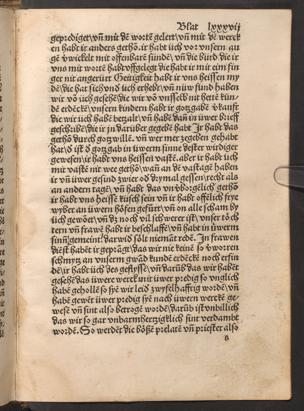 Blat lxxxvij
geprediget / vñ mit dē wortē gelert / vñ mit dē werck
en habt ir anders gethō. ir habt üch vor vnsern au
gē v̈wicklet mit offenbarē sundē / vñ die burd die ir
vns mit wortē habt vffgelegt die habt ir mit eim fin
ger nit angerürt Geitigkeit habt ir vns heissen my
dē / die hat sich vnd üch erhebt / vñ nüw fund haben
wir vō üch gesehē / die wir vō vnss selb nit hettē kün
dē erdēckē / vnsern kindern habt ir gotzgabē v̈kaufft
die wir üch habē bezalt / vñ habē dañ in üwer brieff
geschribē / die ir in darüber gegebē habt Ir habt das
gethō durch gotz willē. vñ wer mer zegeben gehabt
hat / d ist d gotzgab in üwerm sinne dester wirdiger
gewesen / ir habt vns heissen vastē. aber ir habt üch
mit vastē nit wee gethō / wañ an dē vastagē haben
ir vñ üwer gesind zwier od drymal gessen / recht als
an andern tagē / vñ habt das vnv̈borgēlich gethō
ir habt vns heissē küsch sein vñ ir habt offēlich frye
wyber an üwern höfen gefürt / vñ on alle scham by
üch gewōet / vñ dz noch vil schwerer ist / vnser töch
tern vñ frawē habt ir beschlaffē / vñ habt in üwerm
sinn gemeint / dar vmb söllt niemāt redē. In frawen
dīest habēt ir gepräget / das wir nie keinē so v̈worrten
schmytz an vnserm gwād kundē erdēckē noch erfin
dē / ir habt üch des geflyssē / vñ darūb das wir habēt
gesehē das üwere werck mit üwer predig so vnglich
habē gehollē so syē wir leid zwyfelhafftig wordē / vñ
habē gewēt üwer predig syē nach üwern werckē ge-
wesē vñ sint also betrogē wordē / darūb ist vnbillich
das wir so gar vnbarmhertzigklich sint verdambt
wordē. So werdēt die bößē prelatē vñ priester also